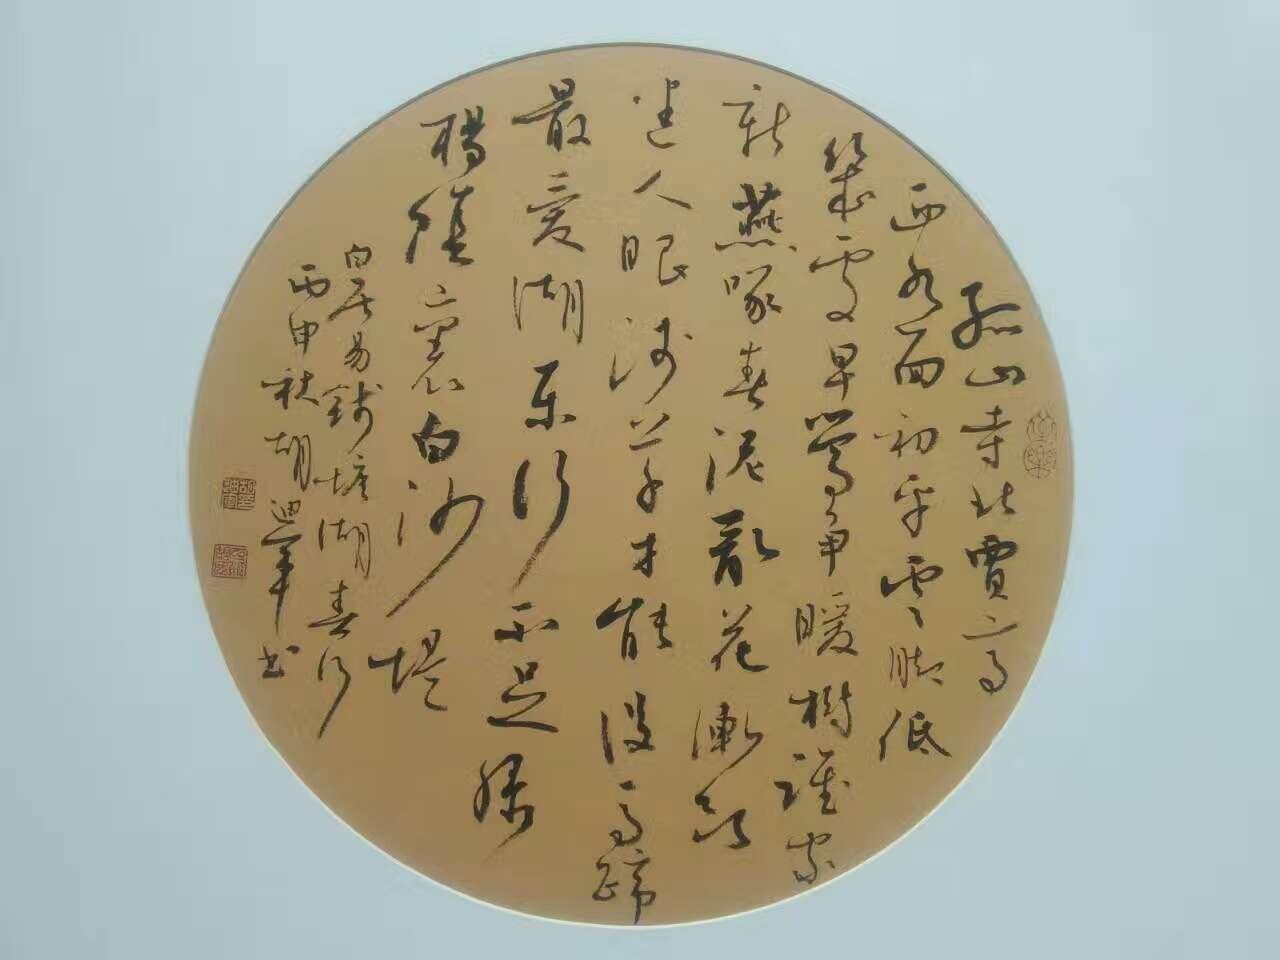 孤山寺北賈亭
西水面初平雲脚低
幾處早鶯争暖樹誰家
新燕啄春泥亂花漸欲
迷人眼淺草才能没馬蹄
最愛湖東行不足緑
楊陰裏白沙堤
白居易錢塘湖春行
丙申秋胡迪軍书